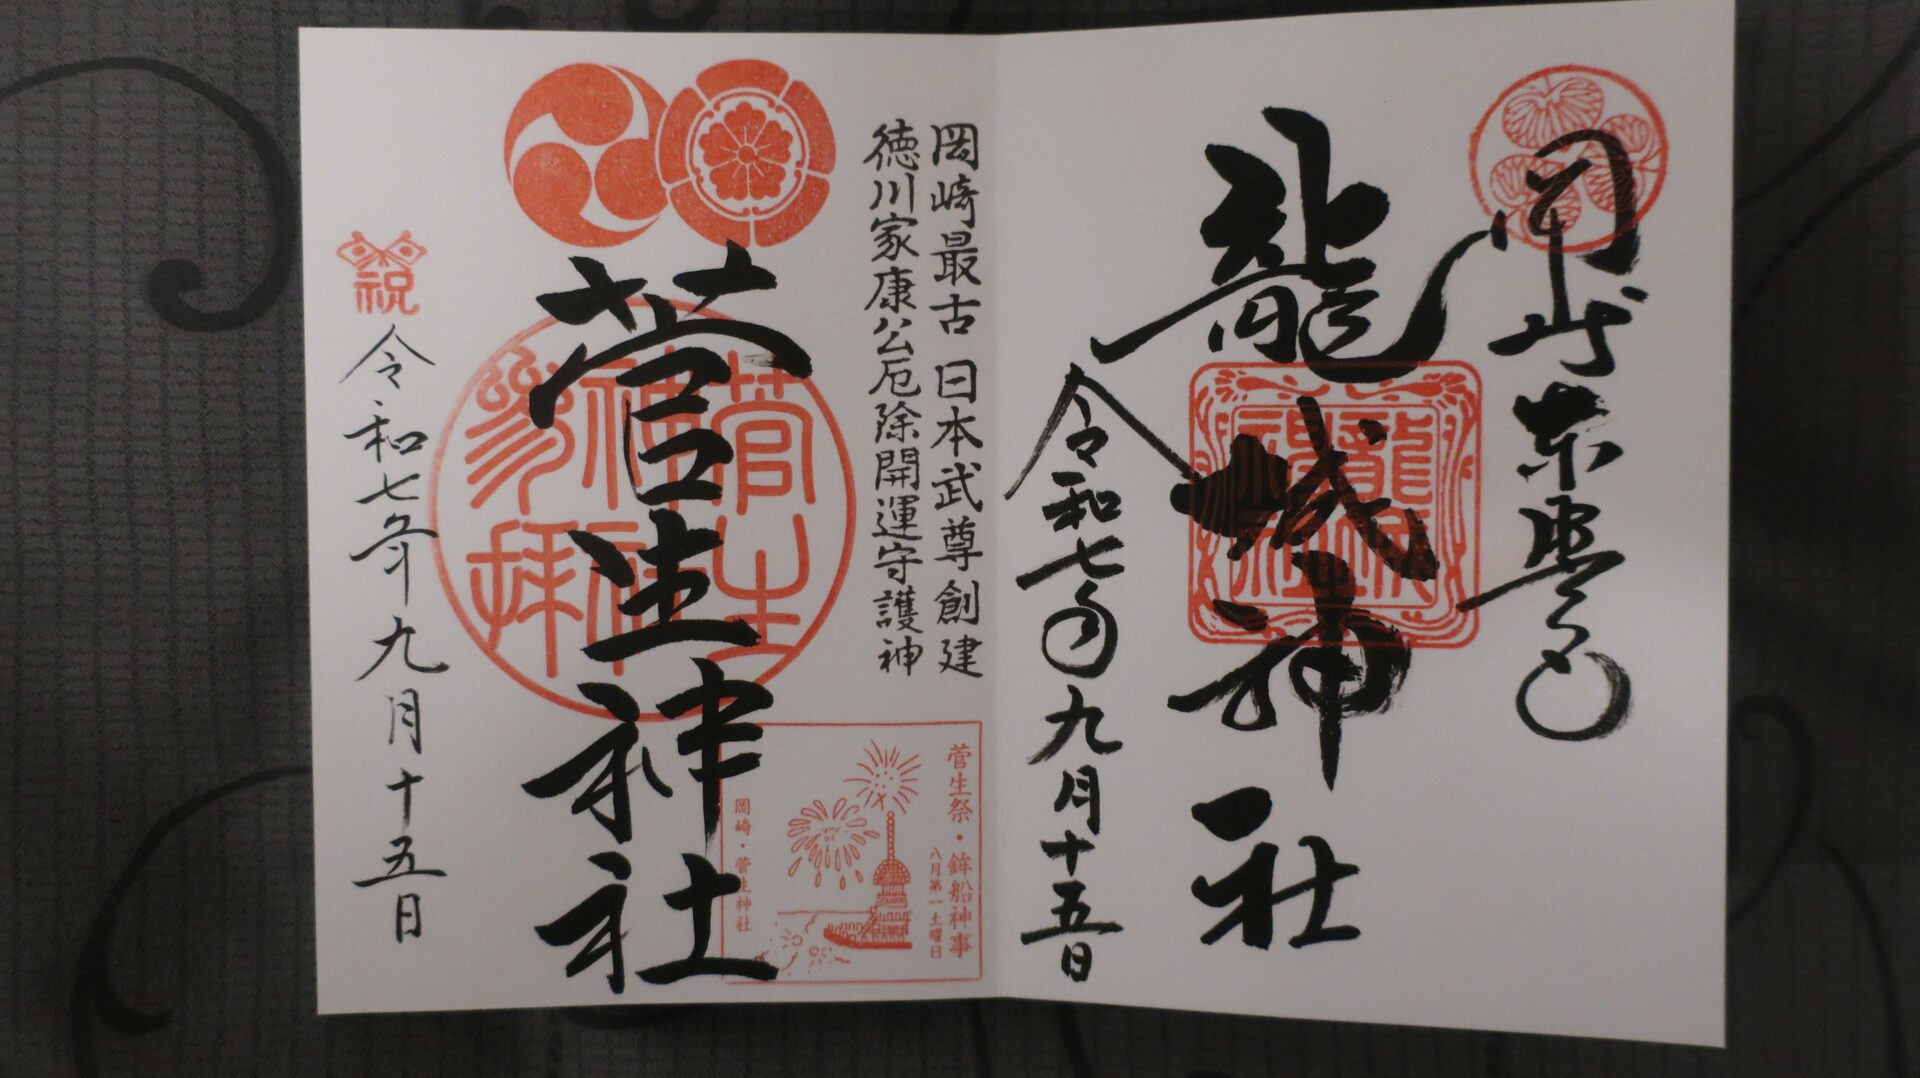 岡崎東照宮
龍城神社
龍城神社
令和七年九月十五日
岡崎最古 日本武尊創建
徳川家康公厄除開運守護神
菅生神社
菅生神社参拝
菅生祭・鉾船神事
八月第一土曜日
岡崎・菅生神社
祝
令和七年九月十五日